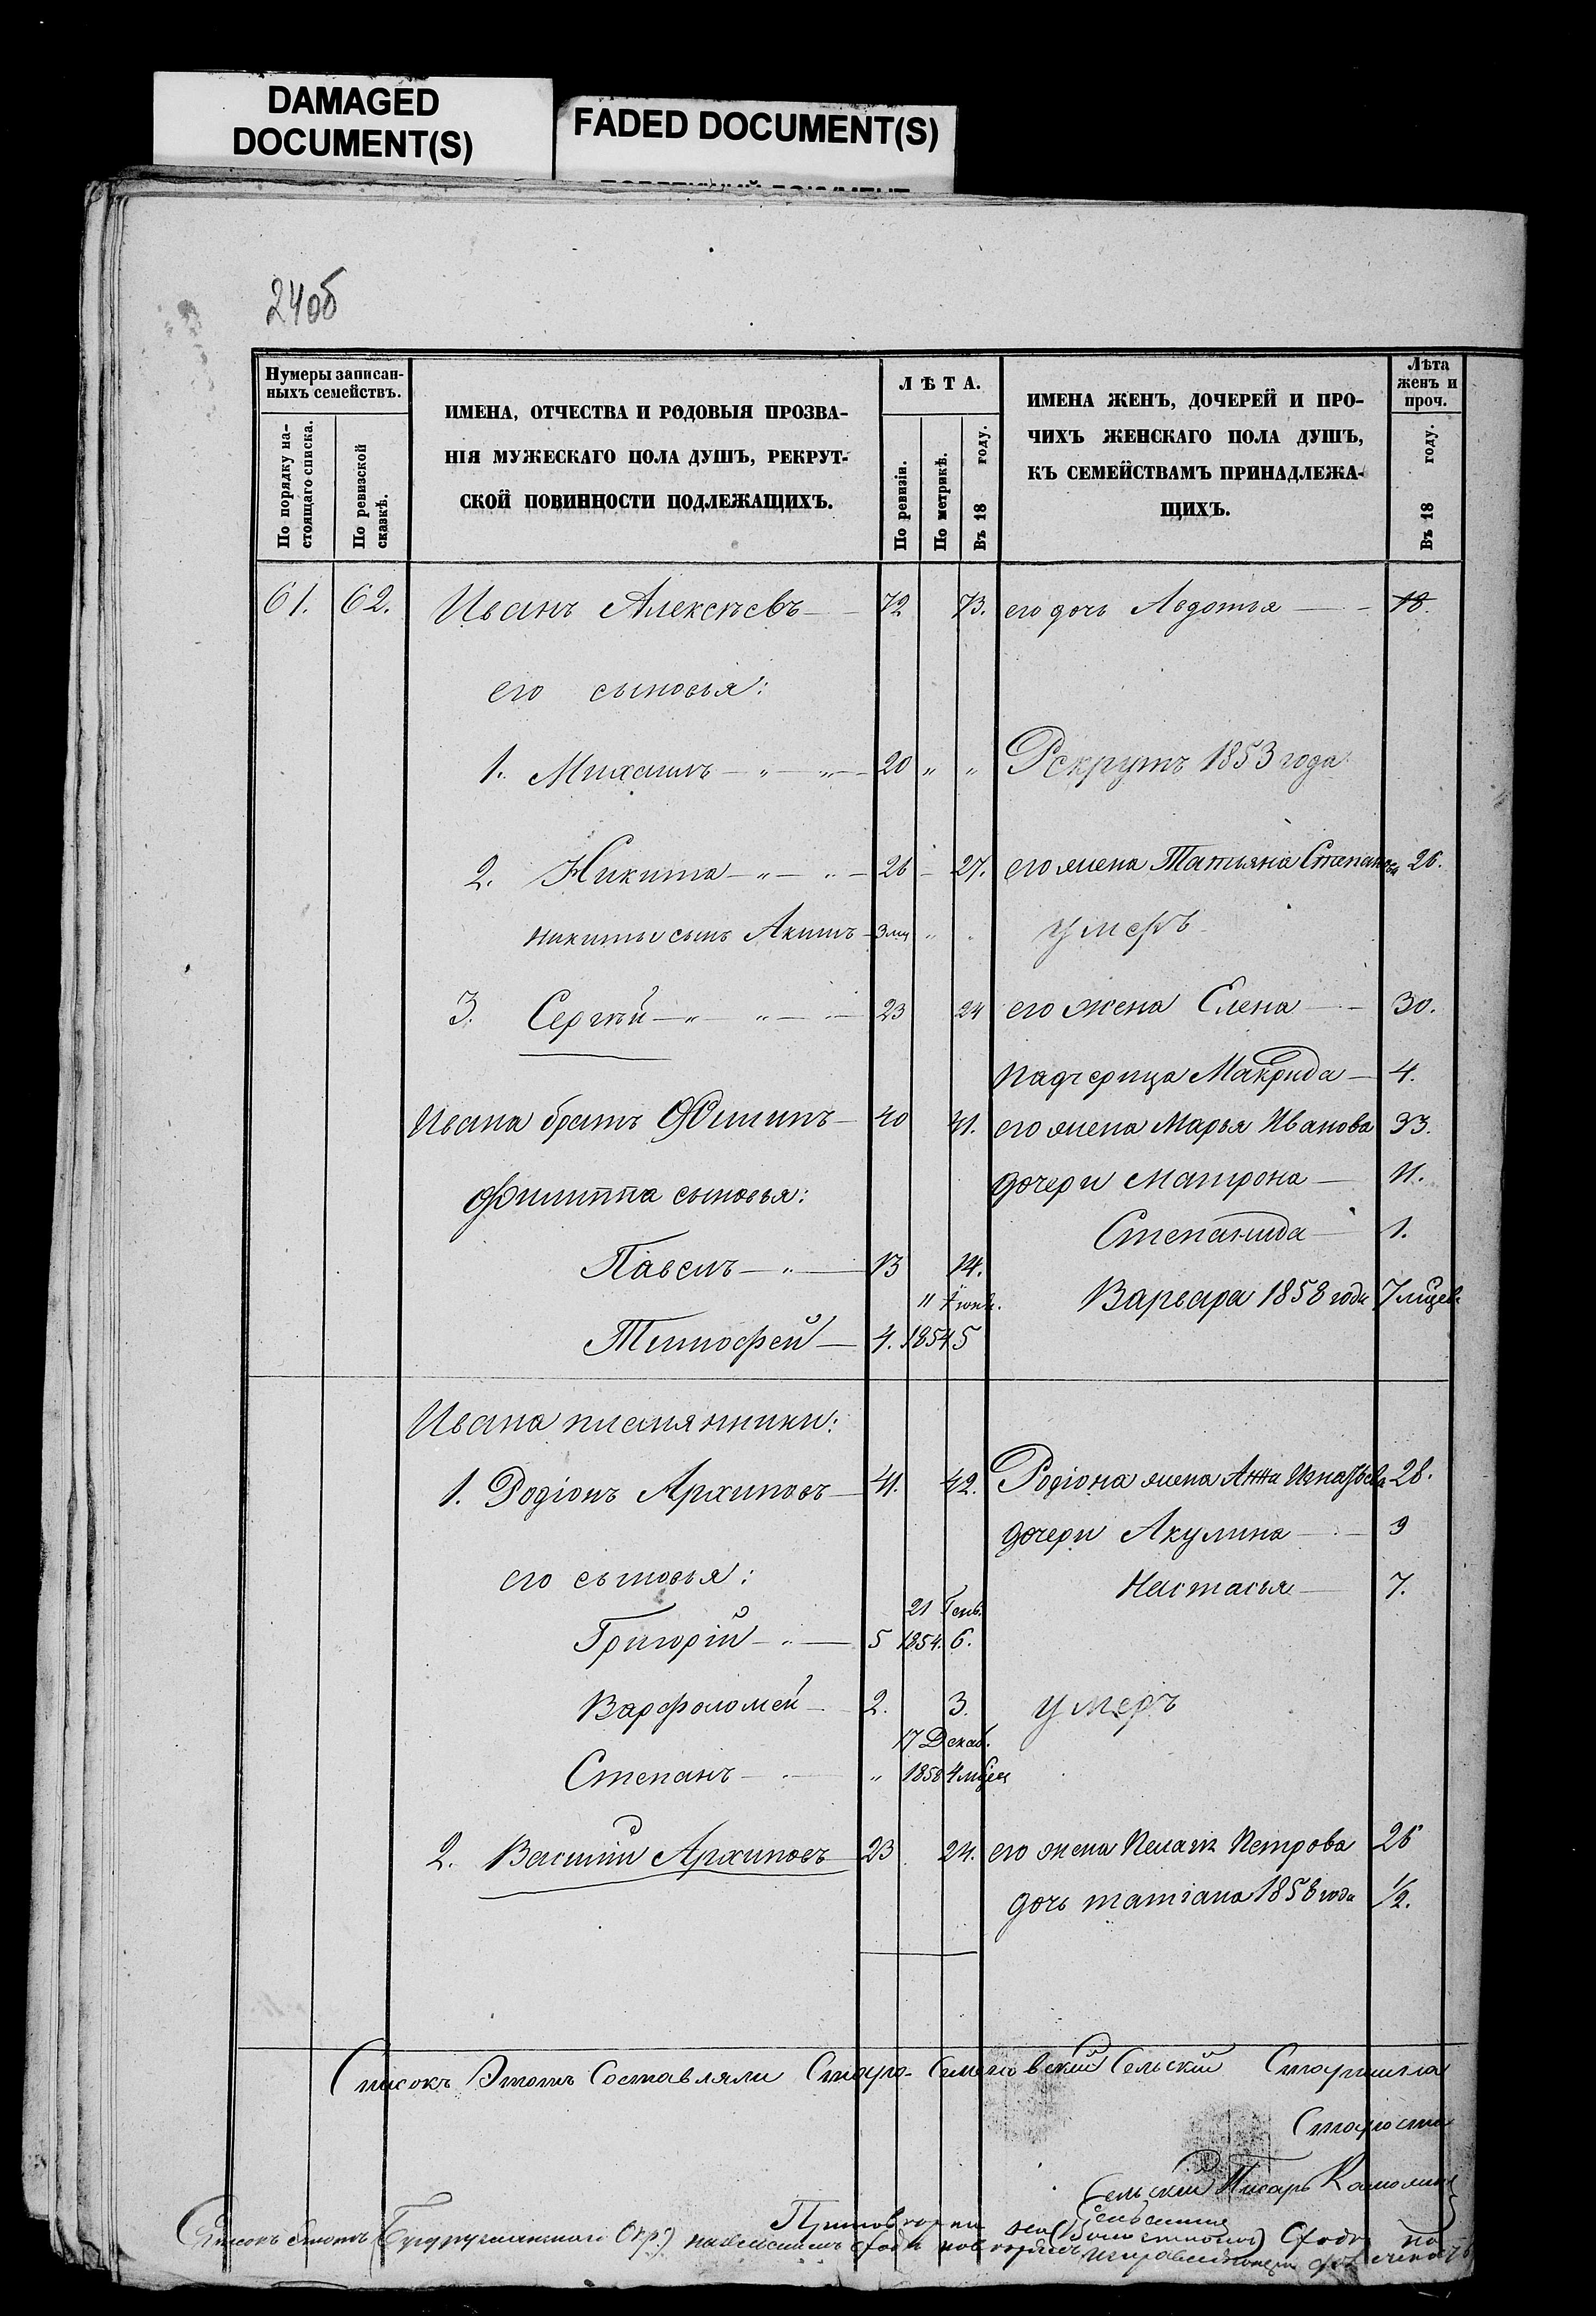 DAMAGED
DOCUMENT(S)
FADED DOCUMENT(S)
24об
Нумеры записан-
ныхъ семействъ.
По порядку на-
стоящаго списка.
По ревизской
сказкѣ.
ИМЕНА, ОТЧЕСТВА И РОДОВЫЯ ПРОЗВА-
НІЯ МУЖЕСКАГО ПОЛА ДУШЪ, РЕКРУТ-
СКОЙ ПОВИННОСТИ ПОДЛЕЖАЩИХЪ.
ЛѢТА.
По ревизіи.
По метрикѣ.
Въ 18 году.
ИМЕНА ЖЕНЪ, ДОЧЕРЕЙ И ПРО-
ЧИХЪ ЖЕНСКАГО ПОЛА ДУШЪ,
КЪ СЕМЕЙСТВАМЪ ПРИНАДЛЕЖА-
ЩИХЪ.
Лѣта
женъ и
проч.
Въ 18 году.
61. 62. Иванъ Алексѣевъ — 72 73. его дочь Авдотья — 18.
его сыновья:
1. Михаилъ — „ — „ — 20 „ „ Рекрутъ 1853 года
2. Никита — „ — „ — 26 — 27. его жена Татьяна Степанова 26.
Никиты сынъ Акимъ — 3 мц „ „ умеръ
3. Сергѣй — „ „ — 23 24 его жена Елена — 30.
падчерица Макрида — 4.
Ивана братъ Филипъ — 40 41. его жена Марья Иванова 33.
Филиппа сыновья: дочери Матрона — 11.
Степанида — 1.
Павелъ — „ — 13 14.
Варвара 1858 года 7 мцев
Тимофей — 4. 1854 5
Ивана племянники:
1. Родіонъ Архиповъ — 41. 42. Родіона жена Анна Игнатьева 28.
дочери Акулина — 9
его сыновья: Настасья — 7.
21 Генв.
Григорій — „ — 5 1854. 6.
Варфоломей — 2. 3. умеръ
17 Декаб.
Степанъ — „ 1858 4 мцев
2. Василій Архиповъ 23 24. его жена Пелагея Петрова 26
дочь татіана 1858 года 1/2.
Списокъ Этотъ Составляли Старо-Семеновский Сельский Старшина
Староста
Сельский Писарь
Списокъ этотъ (Бугурусланскаго Окр:)